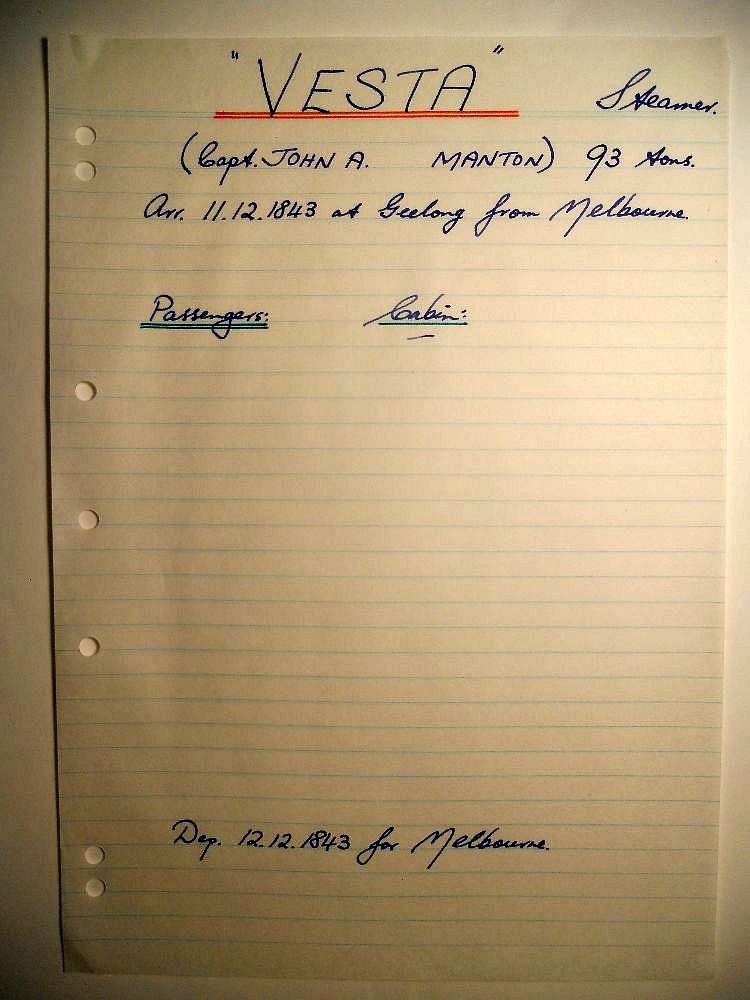 "VESTA" Steamer.
(Capt. JOHN A. MANTON) 93 tons.
Arr. 11.12.1843 at Geelong from Melbourne.
Passengers: Cabin:
—
Dep. 12.12.1843 for Melbourne.